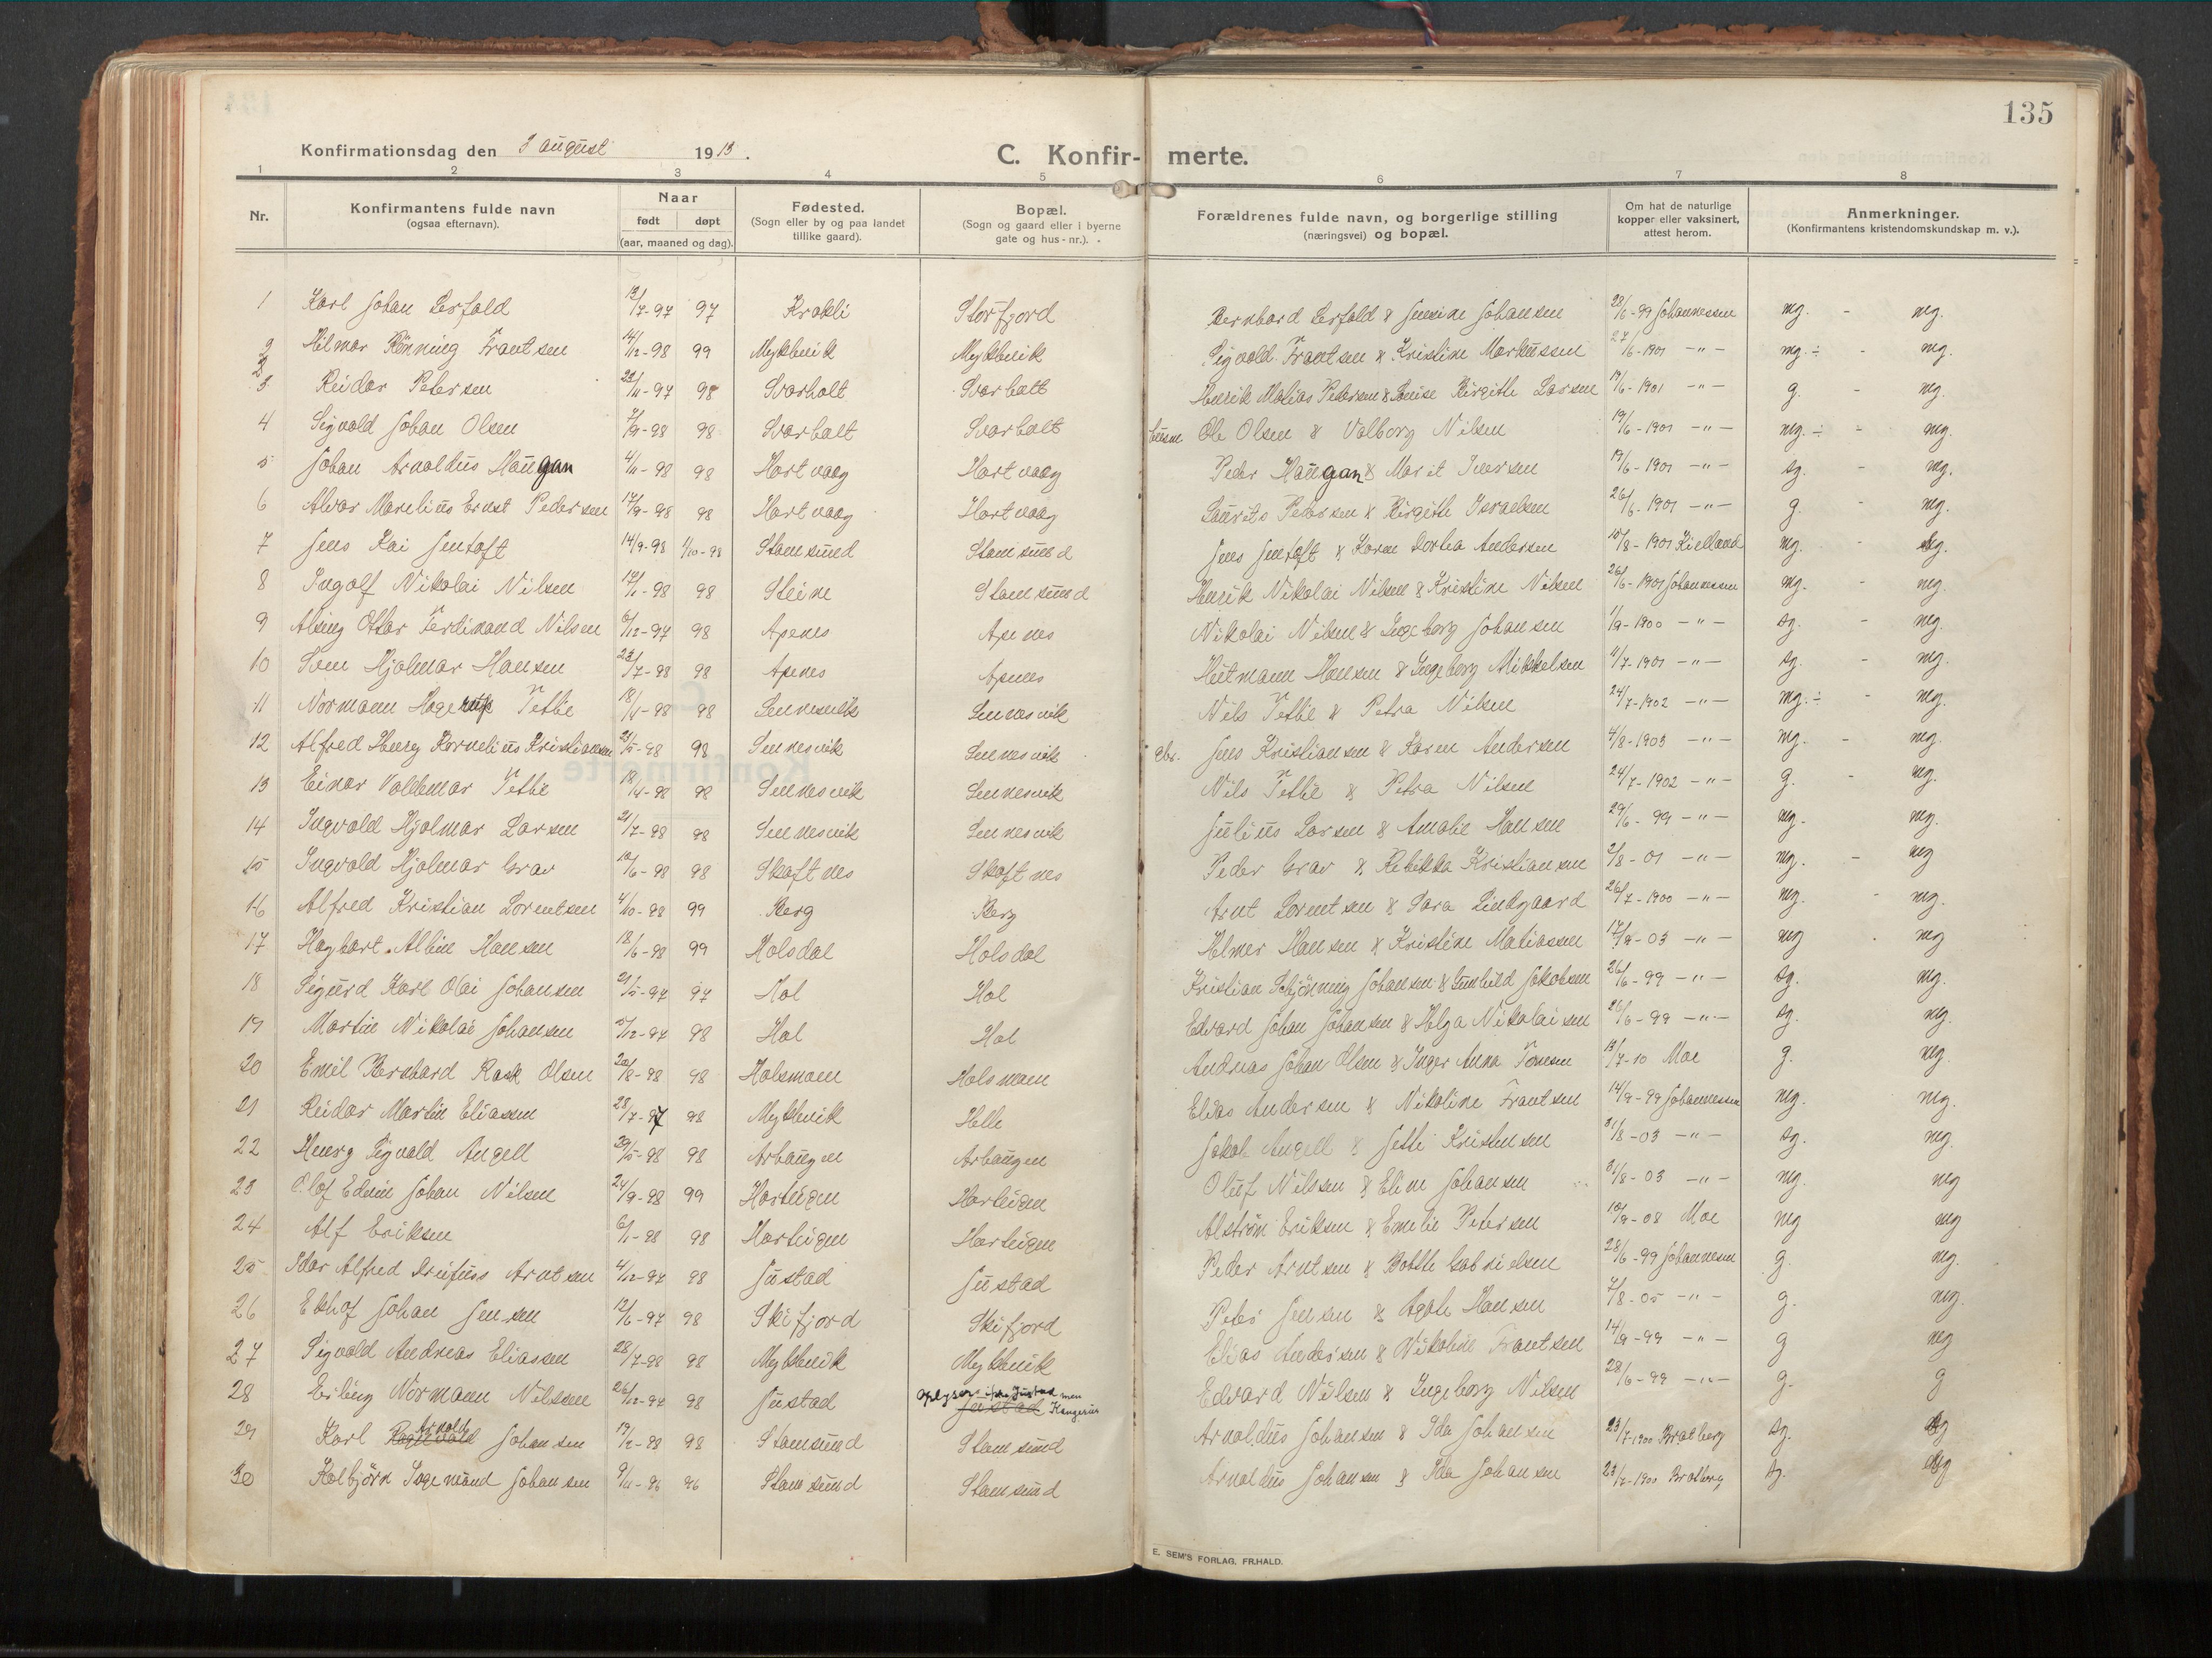 135
Konfirmationsdag den 3 august 1913.
C. Konfir- merte.
1 2 3 4 5 6 7 8
Nr.
Konfirmantens fulde navn
(ogsaa efternavn).
Naar
født døpt
(aar, maaned og dag).
Fødested.
(Sogn eller by og paa landet
tillike gaard).
Bopæl.
(Sogn og gaard eller i byerne
gate og hus-nr.).
Forældrenes fulde navn, og borgerlige stilling
(næringsvei) og bopæl.
Om hat de naturlige
kopper eller vaksinert,
attest herom.
Anmerkninger.
(Konfirmantens kristendomskundskap m. v.).
1 Karl Johan Lerfald 12/7-97 97 Krakli Storfjord Bernhard Lerfald & Jensine Johansen 28/6-99 Johannessen mg. - mg.
2 Hilmar Rönning Frantsen 14/12-98 99 Mykbevik Mykbevik Sigvald Frantsen & Kristine Markussen 27/6-1901 -"- mg.÷ - mg.
3 Reidar Petersen 98 Svarholt Svarholt Henrik Matias Petersen & Louise Birgitte Larsen 19/6-1901 -"- g. - mg.
4 Sigvald Johan Olsen 98 Svarholt Svarholt Ole Olsen & Valborg Nilsen 19/6-1901 -"- mg.÷ - mg.
5 Johan Arnoldus Haugan 4/11-98 98 Hartvaag Hartvaag Peder Haugan & Marit Iversen 19/6-1901 -"- sg. - mg.
6 Alvar Marelius Ernst Pedersen 17/9-98 98 Hartvaag Hartvaag Laurits Pedersen & Birgitte Israelsen 26/6-1901 -"- g. - mg.
7 Jens Kai Jentoft 14/9-98 1/10-98 Stamsund Stamsund Jens Jentoft & Karen Dortea Andersen 10/8-1901 Kielland mg. - mg.
8 Ingolf Nikolai Nilsen 17/1-98 98 Steine Stamsund Henrik Nikolai Nilsen & Kristine Nilsen 26/6-1901 Johannessen mg. - mg.
9 Alsing Ottar Ferdinand Nilsen 6/12-97 98 Apenes Apenes Nikolai Nilsen & Ingeborg Johansen 1/9-1900 -"- sg. - mg.
10 Sven Hjalmar Hansen 23/7-98 98 Apenes Apenes Hutmann Hansen & Ingeborg Mikkelsen 11/7-1901 -"- sg. - mg.
11 Normann Hagerup Tetlie 18/4-98 98 Sennesvik Sennesvik Nils Tetlie & Petra Nilsen 24/7-1902 -"- mg.÷ - mg.
12 Alfred Henry Kornelius Kristiansen 21/5-98 98 Sennesvik Sennesvik Jens Kristiansen & Karen Andersen 4/8-1903 -"- mg. - mg.
13 Einar Valdemar Tetlie 18/4-98 98 Sennesvik Sennesvik Nils Tetlie & Petra Nilsen 24/7-1902 -"- g. - mg.
14 Ingvald Hjalmar Larsen 21/7-98 98 Sennesvik Sennesvik Julius Larsen & Amalie Hansen 29/6-99 -"- mg. mg.
15 Ingvald Hjalmar Grav 10/6-98 98 Skaftnes Skaftnes Peder Grav & Rebekka Kristiansen 2/8-01 -"- mg. - mg
16 Alfred Kristian Lorentsen 4/10-98 99 Berg Berg Arnt Lorentsen & Sara Lindgaard 26/7-1900 -"- mg. - mg.
17 Hagbart Albin Hansen 18/6-98 99 Holsdal Holsdal Helmer Hansen & Kristine Matiassen 17/8-03 -"- mg mg
18 Sigurd Karl Olai Johansen 21/5-97 97 Hol Hol Kristian Schjönning Johansen & Gunhild Jakobsen 26/6-99 -"- sg. mg.
19 Martin Nikolai Johansen 5/12-97 98 Hol Hol Edvard Johan Johansen & Helga Nikolaisen 26/6-99 -"- sg. mg.
20 Emil Bernhard Rask Olsen 20/8-98 98 Holsmoen Holsmoen Andreas Johan Olsen & Inger Anna Tönesen 13/7-10 Moe g. mg.
21 Reidar Martin Eliassen 28/7-97 98 Mykbevik Helle Elias Andersen & Nikoline Frantsen 14/9-99 Johannessen mg. mg.
22 Henry Sigvald Angell 29/5-98 98 Arhaugen Arhaugen Jakob Angell & Jette Kristensen 31/8-03 -"- sg. mg.
23 Olof Edvin Johan Nilsen 24/9-98 99 Harteigen Harteigen Oluf Nilssen & Eline Johansen 31/8-03 -"- mg. mg
24 Alf Eriksen 6/1-98 98 Harteigen Harteigen Alström Eriksen & Emelie Petersen 10/9-08 Moe mg mg
25 Idar Alfred Dreifuss Arntsen 4/12-97 98 Justad Justad Peder Arntsen & Bottle Gabrielsen 28/6-99 Johannessen g. mg.
26 Ekhof Johan Jensen 12/6-97 98 Skifjord Skifjord Peter Jensen & Agate Hansen 7/8-05 -"- g. mg.
27 Sigvald Andreas Eliassen 28/7-98 98 Mykbevik Mykbevik Elias Andersen & Nikoline Frantsen 14/9-99 -"- g mg
28 Erling Normann Nilssen 26/12-97 98 Justad Justad Edvard Nilsen & Ingeborg Nilsen 28/6-99 -"- g. g
29 Karl Arnold Johansen 19/2-98 98 Stamsund Stamsund Arnoldus Johansen & Ida Johansen 23/7-1900 Bratberg sg. sg
30 Kolbjörn Ingemund Johansen 9/11-96 96 Stamsund Stamsund Arnoldus Johansen & Ida Johansen 23/7-1900 Bratberg sg. mg
E. SEM'S FORLAG, FR.HALD.